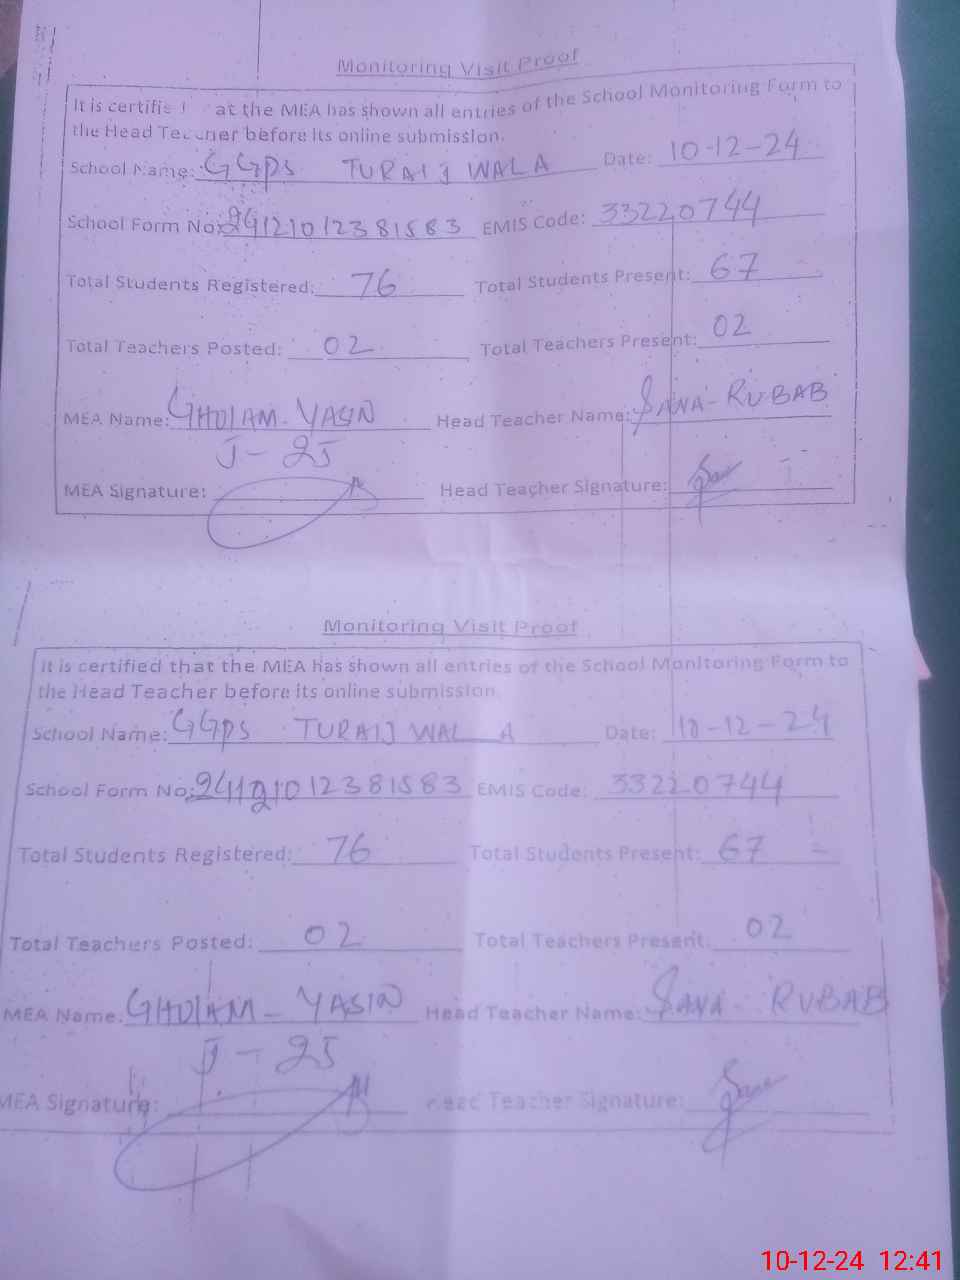 Monitoring Visit Proof
It is certifie at the MEA has shown all entries of the School Monitoring Form to
the Head Teacher before its online submission.
School Name: GGPS TURAIJ WALA Date: 10-12-24
School Form No: 24121012381583 EMIS Code: 33220744
Total Students Registered: 76 Total Students Present: 67
Total Teachers Posted: 02 Total Teachers Present: 02
MEA Name: GHOLAM-YASIN Head Teacher Name: SANA-RUBAB
J-25
MEA Signature: Head Teacher Signature:
Monitoring Visit Proof
It is certified that the MEA has shown all entries of the School Monitoring Form to
the Head Teacher before its online submission.
School Name: GGPS TURAIJ WALA Date: 10-12-24
School Form No: 24121012381583 EMIS Code: 33220744
Total Students Registered: 76 Total Students Present: 67
Total Teachers Posted: 02 Total Teachers Present: 02
MEA Name: GHOLAM-YASIN Head Teacher Name: SANA-RUBAB
J-25
MEA Signature: Head Teacher Signature:
10-12-24 12:41